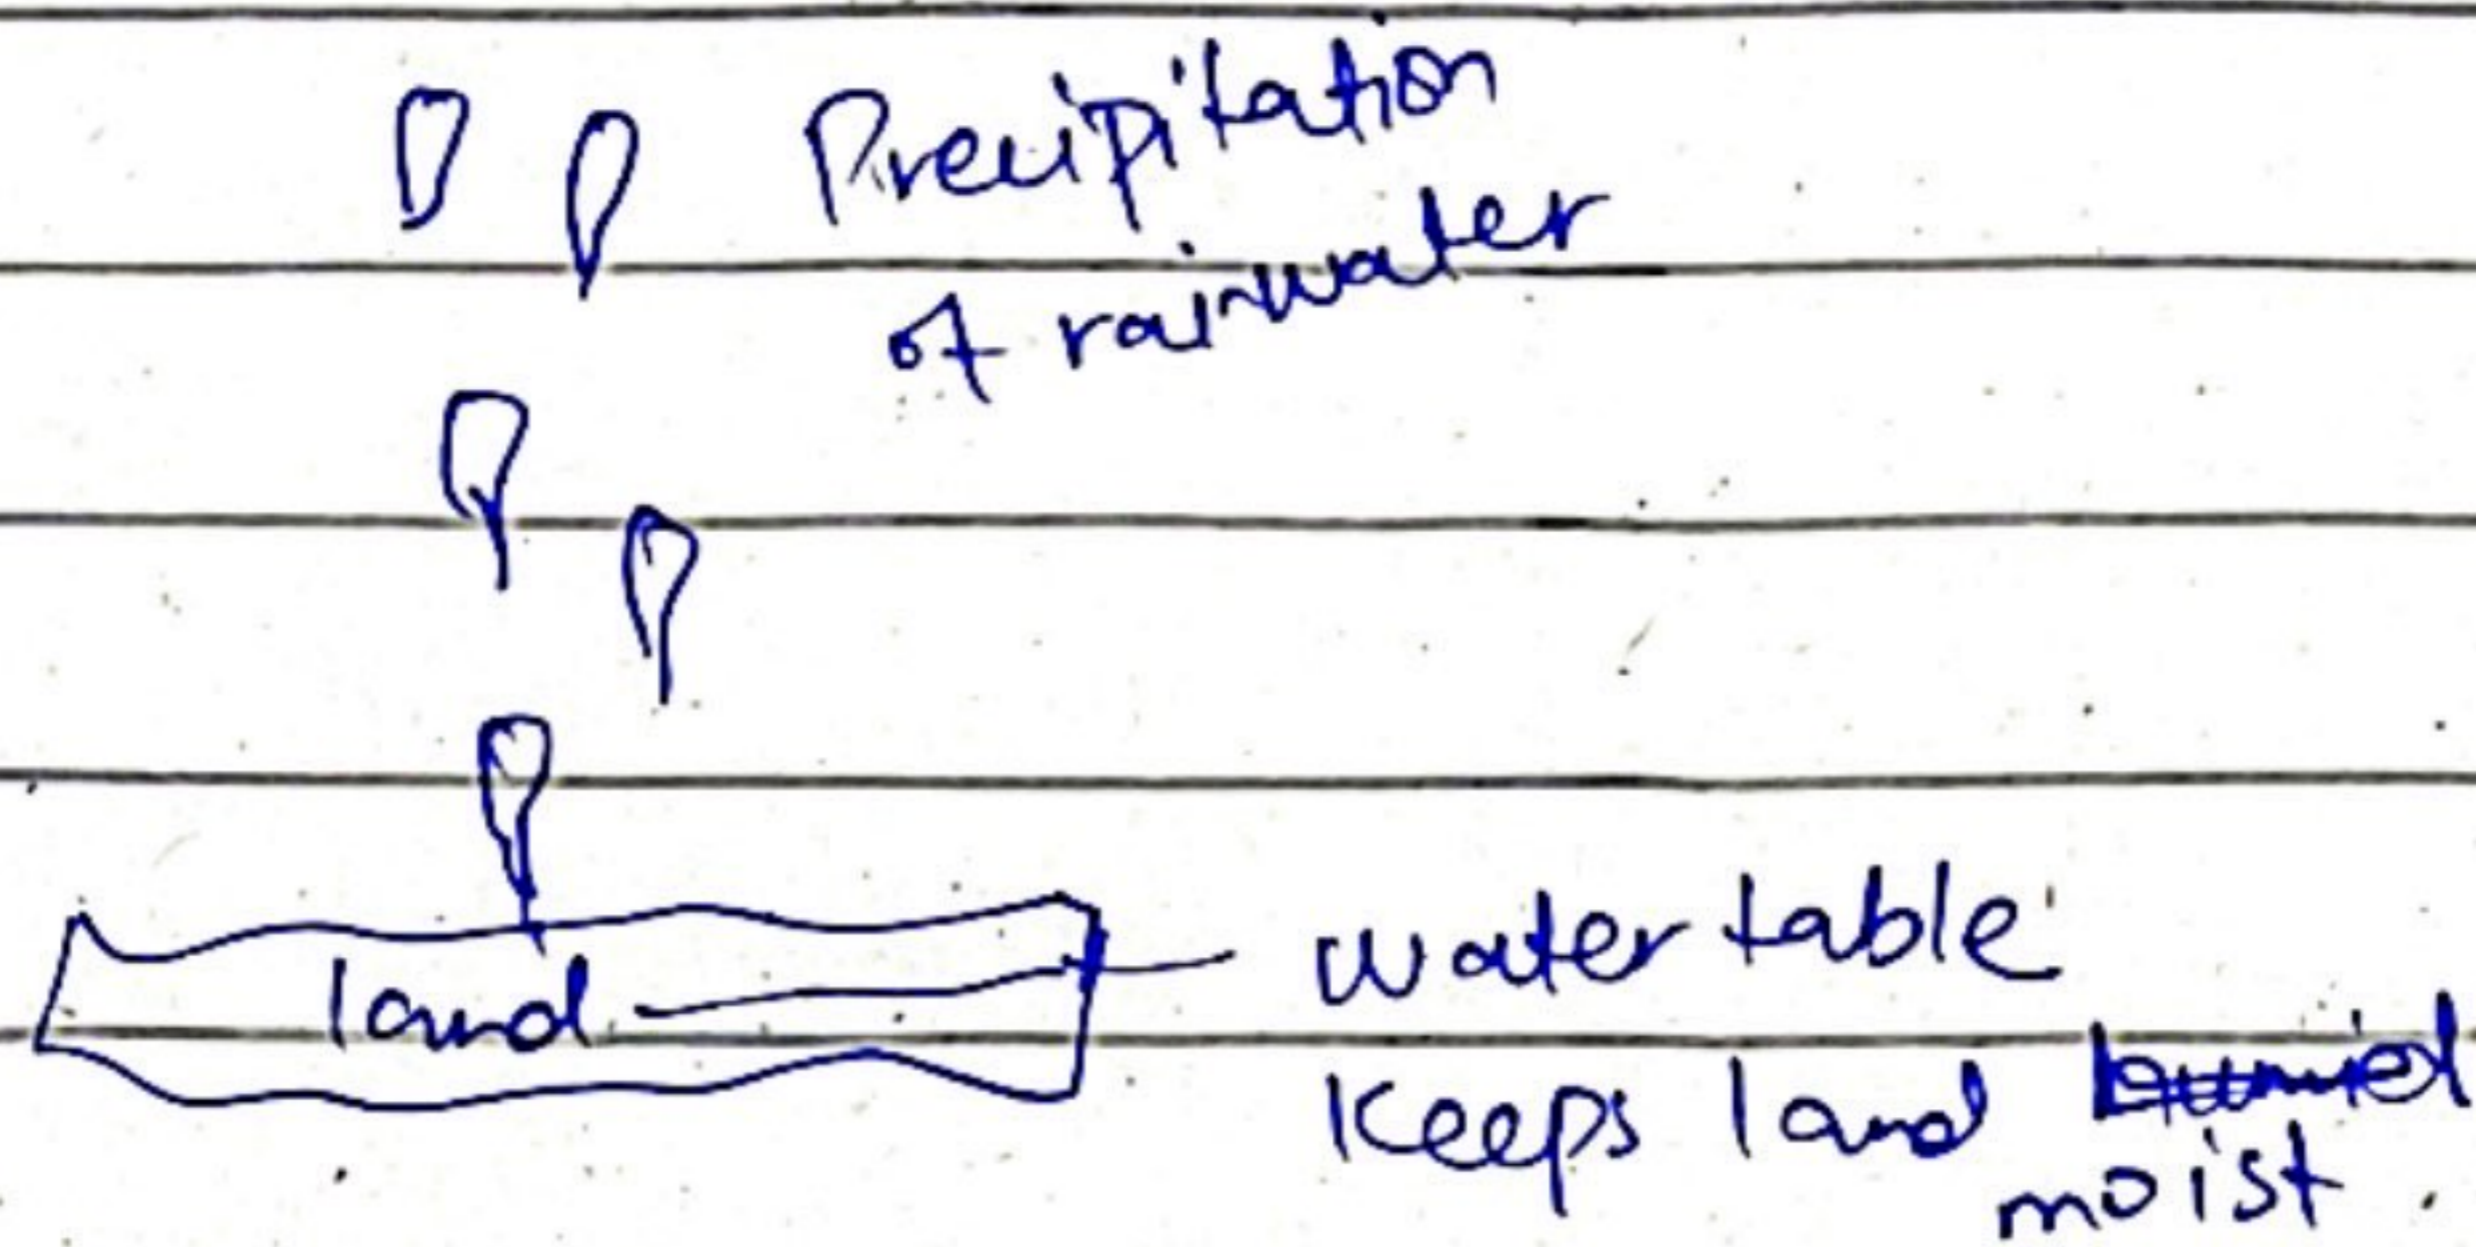 Precipitation
of rainwater
land
water table
Keeps land humid
moist.